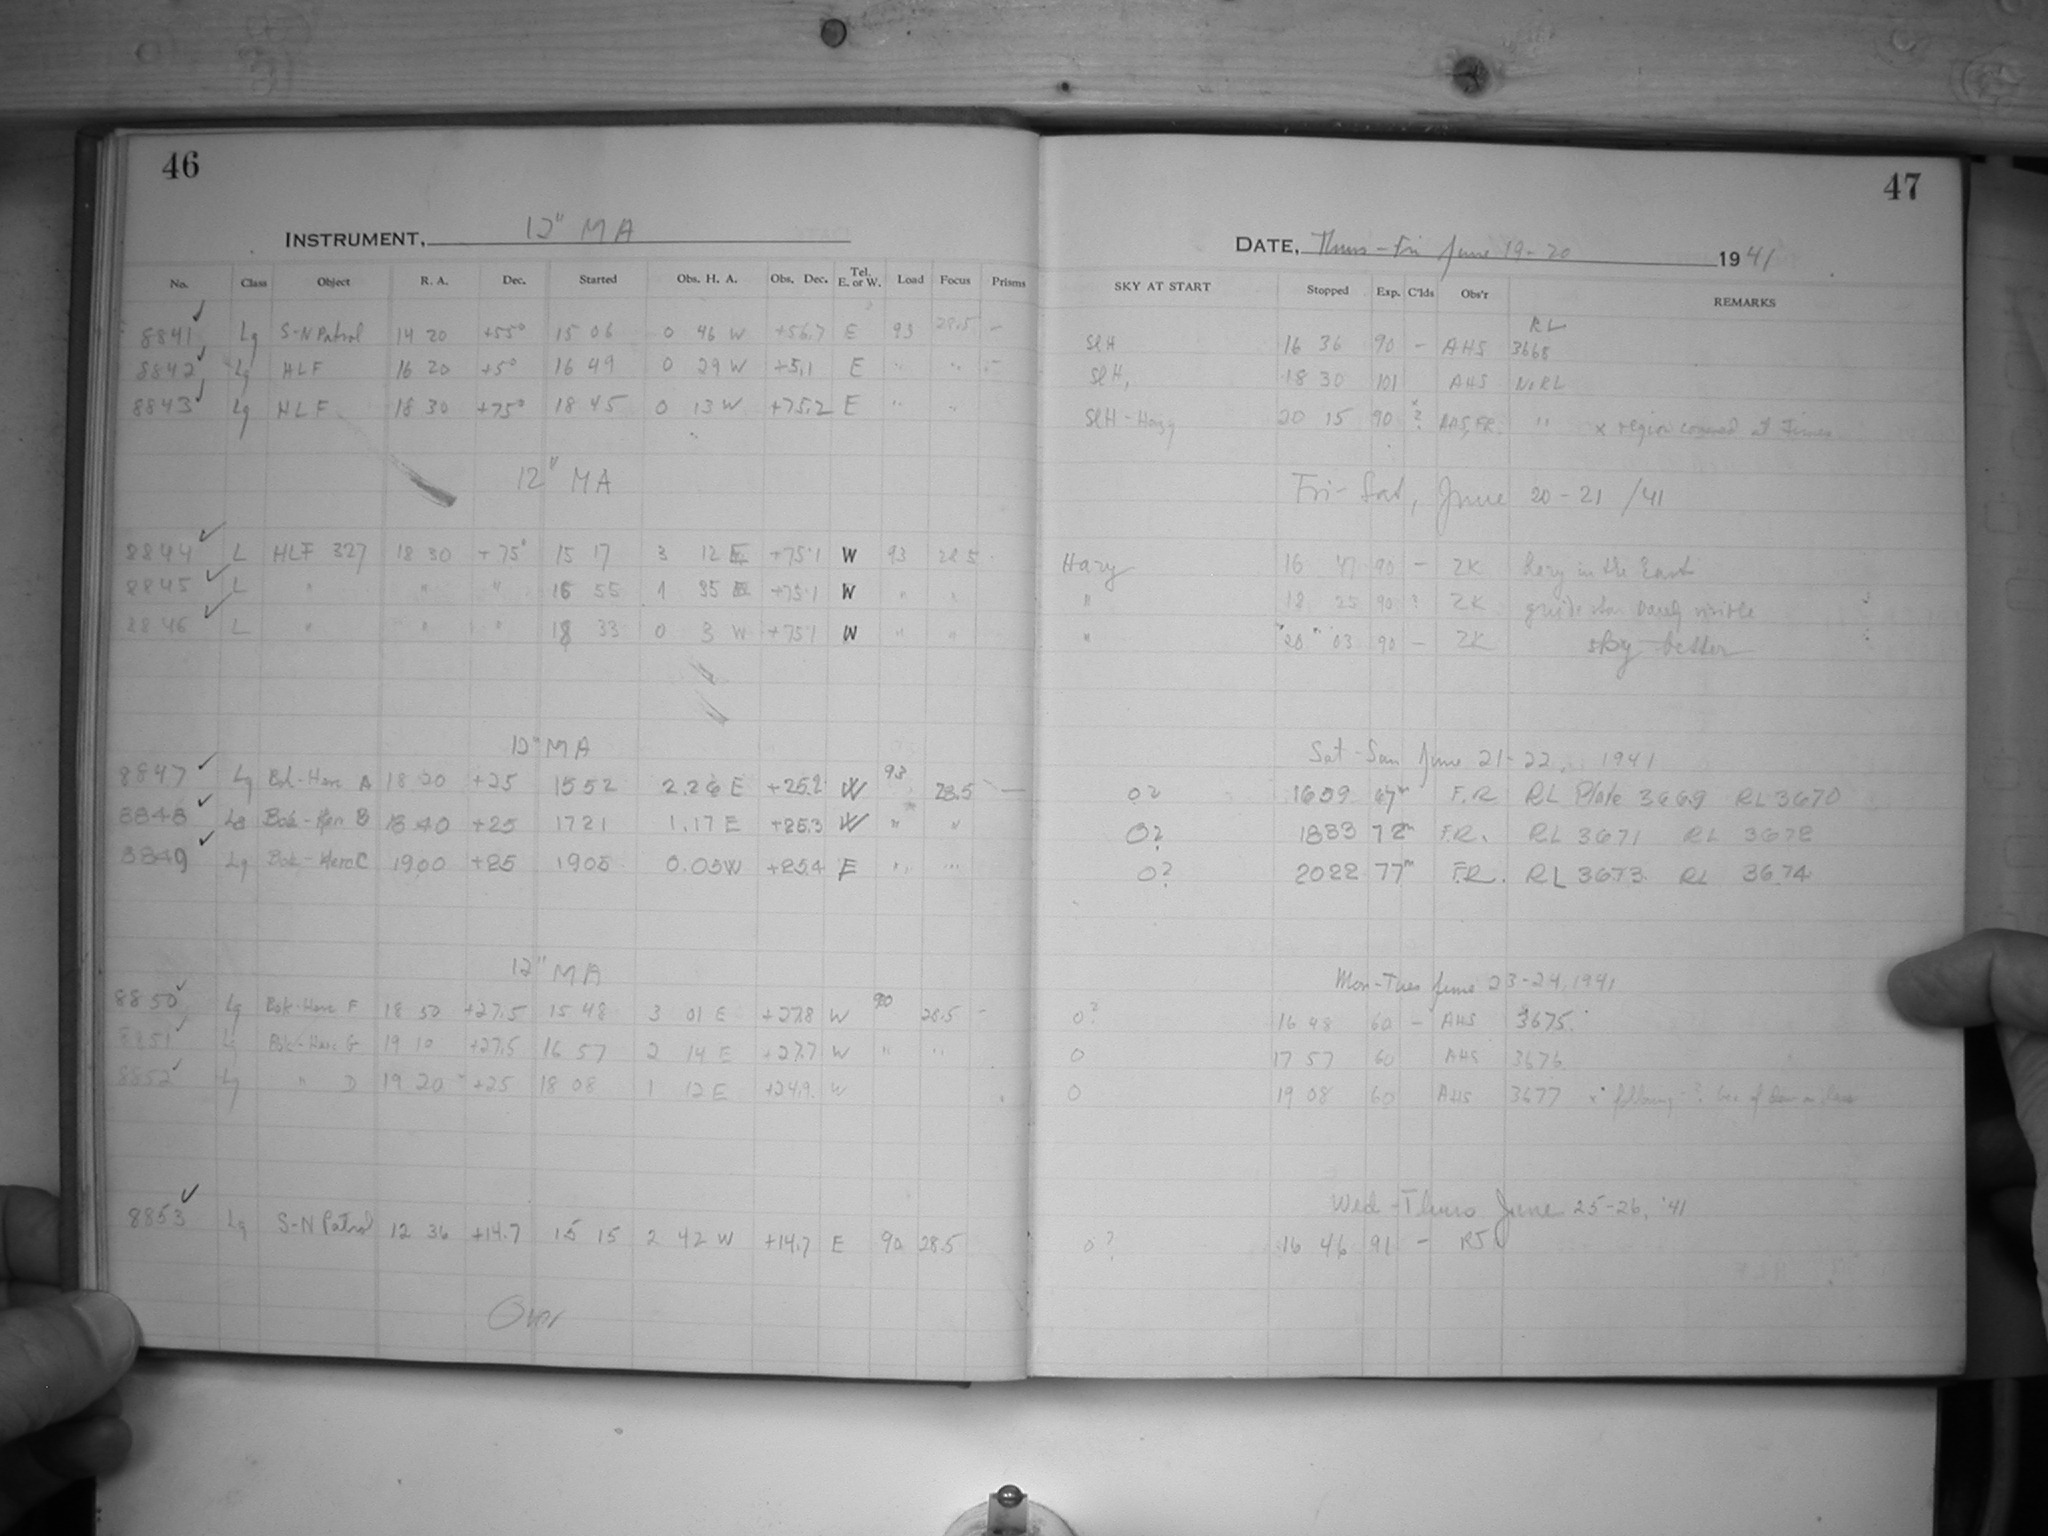 46
INSTRUMENT, 12" M A
No. Class Object R. A. Dec. Started Obs. H. A. Obs. Dec. Tel. E. or W. Load Focus Prisms
8841 Lg S-N Patrol 14 20 +55° 15 06 0 46 W +56.7 E 93 28.5 –
8842 Lg HLF 16 20 +5° 16 49 0 29 W +5.1 E " " –
8843 Lg HLF 18 30 +75° 18 45 0 13 W +75.2 E " "
12" MA
8844 L HLF 327 18 30 +75° 15 17 3 12 E +75.1 W 93 28.5
8845 L " " " 16 55 1 35 E +75.1 W " "
8846 L " " " 18 33 0 3 W +75.1 W " "
12" M A
8847 Lg Bok-Herc A 18 20 +25 15 52 2.26 E +25.2 W 93 28.5 —
8848 Lg Bok-Her B 18 40 +25 1721 1.17 E +25.3 W " "
8849 Lg Bok-Herc C 1900 +25 1905 0.05W +25.4 E " "
12" M A
8850 Lg Bok-Herc F 18 50 +27.5 15 48 3 01 E +27.8 W 90 28.5 –
8851 Lg Bok-Herc G 19 10 +27.5 16 57 2 14 E +27.7 W " "
8852 Lg " D 19 20 +25 18 08 1 12 E +24.9 W
8853 Lg S-N Patrol 12 36 +14.7 15 15 2 42 W +14.7 E 90 28.5
Over
47
DATE, Thurs-Fri June 19-20 1941
SKY AT START Stopped Exp. C'lds Obs'r REMARKS
RL
SlH 16 36 90 – AHS 3668
SlH, 18 30 101 AHS No RL
SlH-Hazy 20 15 90 ? AHS, FR. " x region covered at Times
Fri-Sat, June 20-21 /41
Hazy 16 47 90 – ZK hazy in the East
" 18 25 90 ? ZK guide star barely visible
" 20 03 90 – ZK sky better
Sat-Sun June 21-22, 1941
0? 1659 67m F.R RL Plate 3669 RL 3670
0? 1833 72m F.R. RL 3671 RL 3672
0? 2022 77m F.R. RL 3673 RL 3674
Mon-Tues June 23-24, 1941
0? 16 48 60 – AHS 3675
0 17 57 60 AHS 3676
0 19 08 60 AHS 3677 x following
Wed-Thurs June 25-26, '41
0? 16 46 91 – RJ